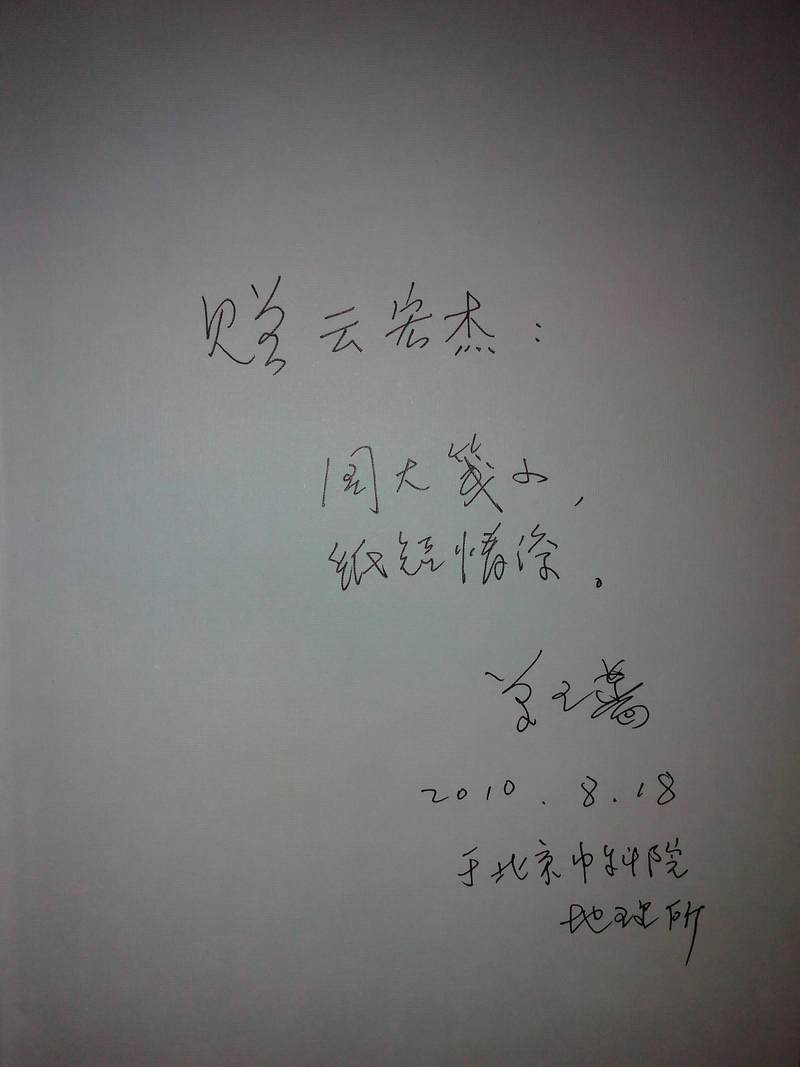 赠云宏杰：
图大笺小，
纸短情深。
2010.8.18
于北京中科院
地理所